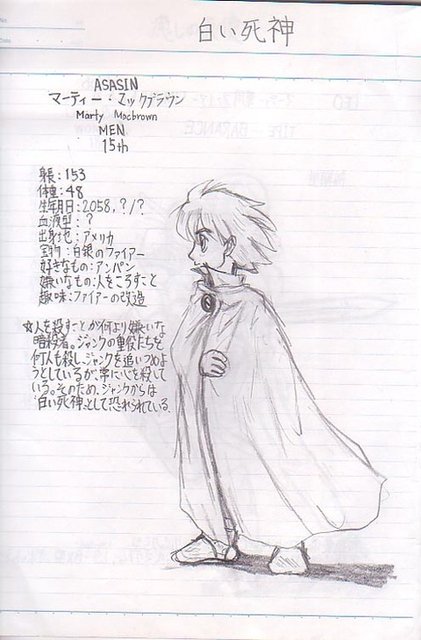 白い死神
ASASIN
マーティー・マックブラウン
Marty Macbrown
MEN
15th
身長:153
体重:48
生年月日:2058,?/?
血液型:?
出身地:アメリカ
宝物:白銀のファイアー
好きなもの:アンパン
嫌いなもの:人をころすこと
趣味:ファイアーの改造
☆人を殺すことが何より嫌いな
暗殺者。ジャンクの重役たちを
何人も殺し、ジャンクを追いつめよ
うとしているが、常に心を殺して
いる。そのため、ジャンクからは
"白い死神"として恐れられている。